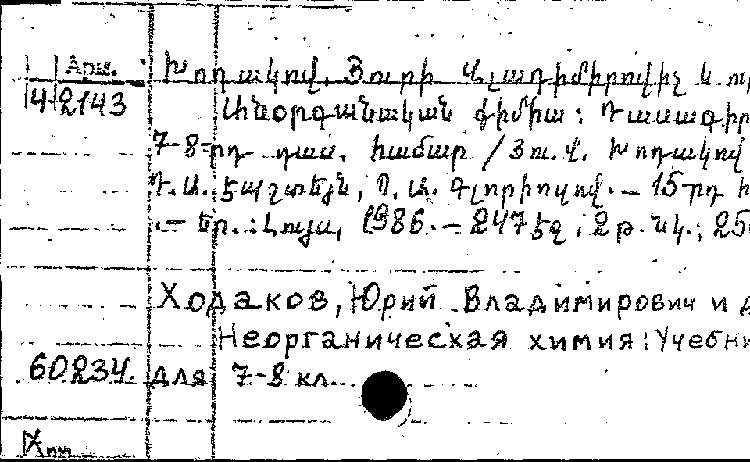 Арм. Խոդակով, Յուրի Վլադիմիրովիչ և ու
14 2143 Անօրգանական քիմիա: Դասագիր
7-8-րդ դաս. համար / Յու.Վ. Խոդակով
Դ.Ա. Էպշտեյն, Պ.Ա. Գլորիոզով. — 15-րդ հ
. — Եր.: Լույս, 1986. — 247 էջ; 2 թ. նկ.; 25
Ходаков, Юрий Владимирович и д
Неорганическая химия: Учебни
60234. для 7-8 кл.